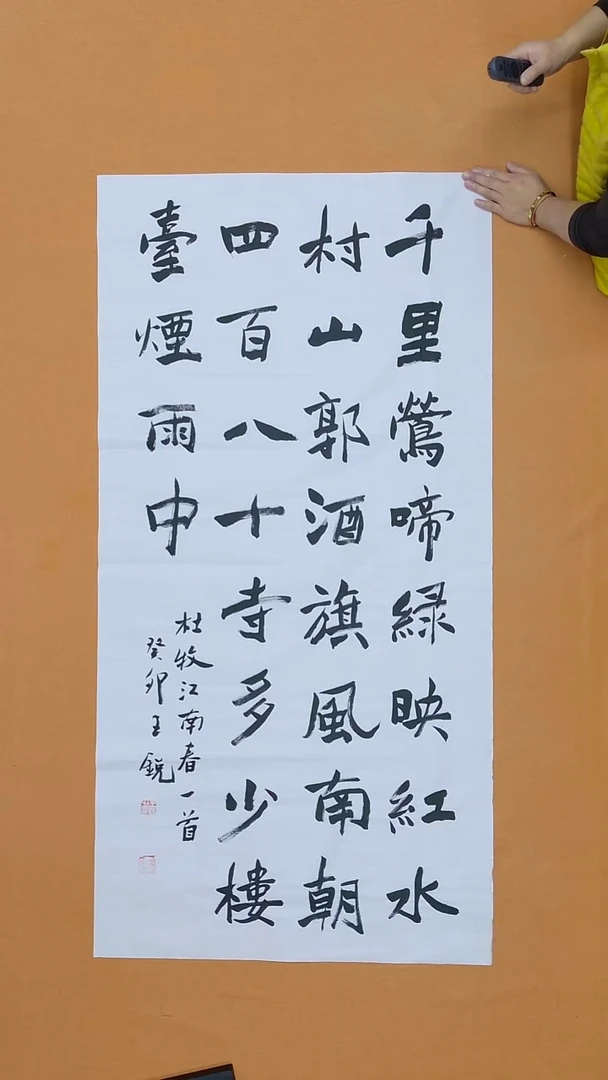 千里鶯啼緑映紅水
村山郭酒旗風南朝
四百八十寺多少樓
臺煙雨中
杜牧江南春一首
癸卯王銳